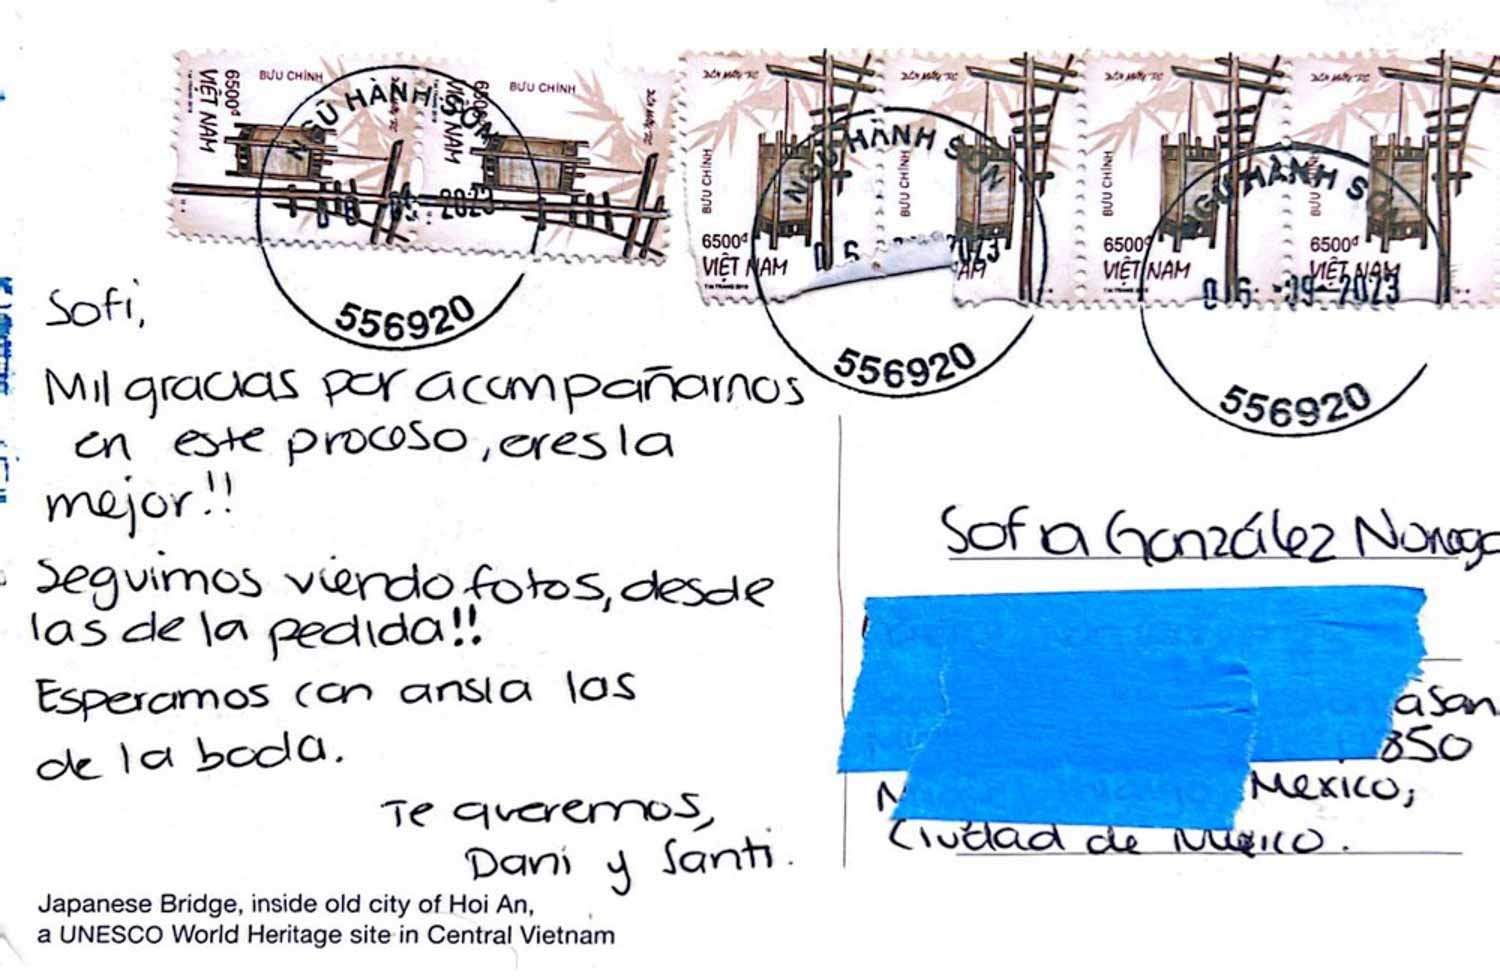 6500đ BƯU CHÍNH
VIỆT NAM
BƯU CHÍNH
NGŨ HÀNH SƠN
2023
556920
BƯU CHÍNH
6500đ
VIỆT NAM
BƯU CHÍNH
NGŨ HÀNH SƠN
2023
556920
BƯU CHÍNH
6500đ
VIỆT NAM
6500đ
VIỆT NAM
NGŨ HÀNH SƠN
06-09-2023
556920
Sofi,
Mil gracias por acompañarnos
en este proceso, eres la
mejor!!
Seguimos viendo fotos, desde
las de la pedida!!
Esperamos con ansia las
de la boda.
Te queremos,
Dani y Santi.
Sofia González
850
Mexico,
Ciudad de México.
Japanese Bridge, inside old city of Hoi An,
a UNESCO World Heritage site in Central Vietnam